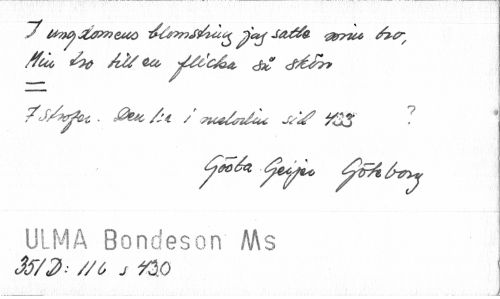 I ungdomens blomstring jag satte min tro,
Min tro till en flicka så skön
7 strofer. Den 1:a i melodin sid 433 ?
Gösta Geijer Göteborg
ULMA Bondeson Ms
351 D: 116 s 430